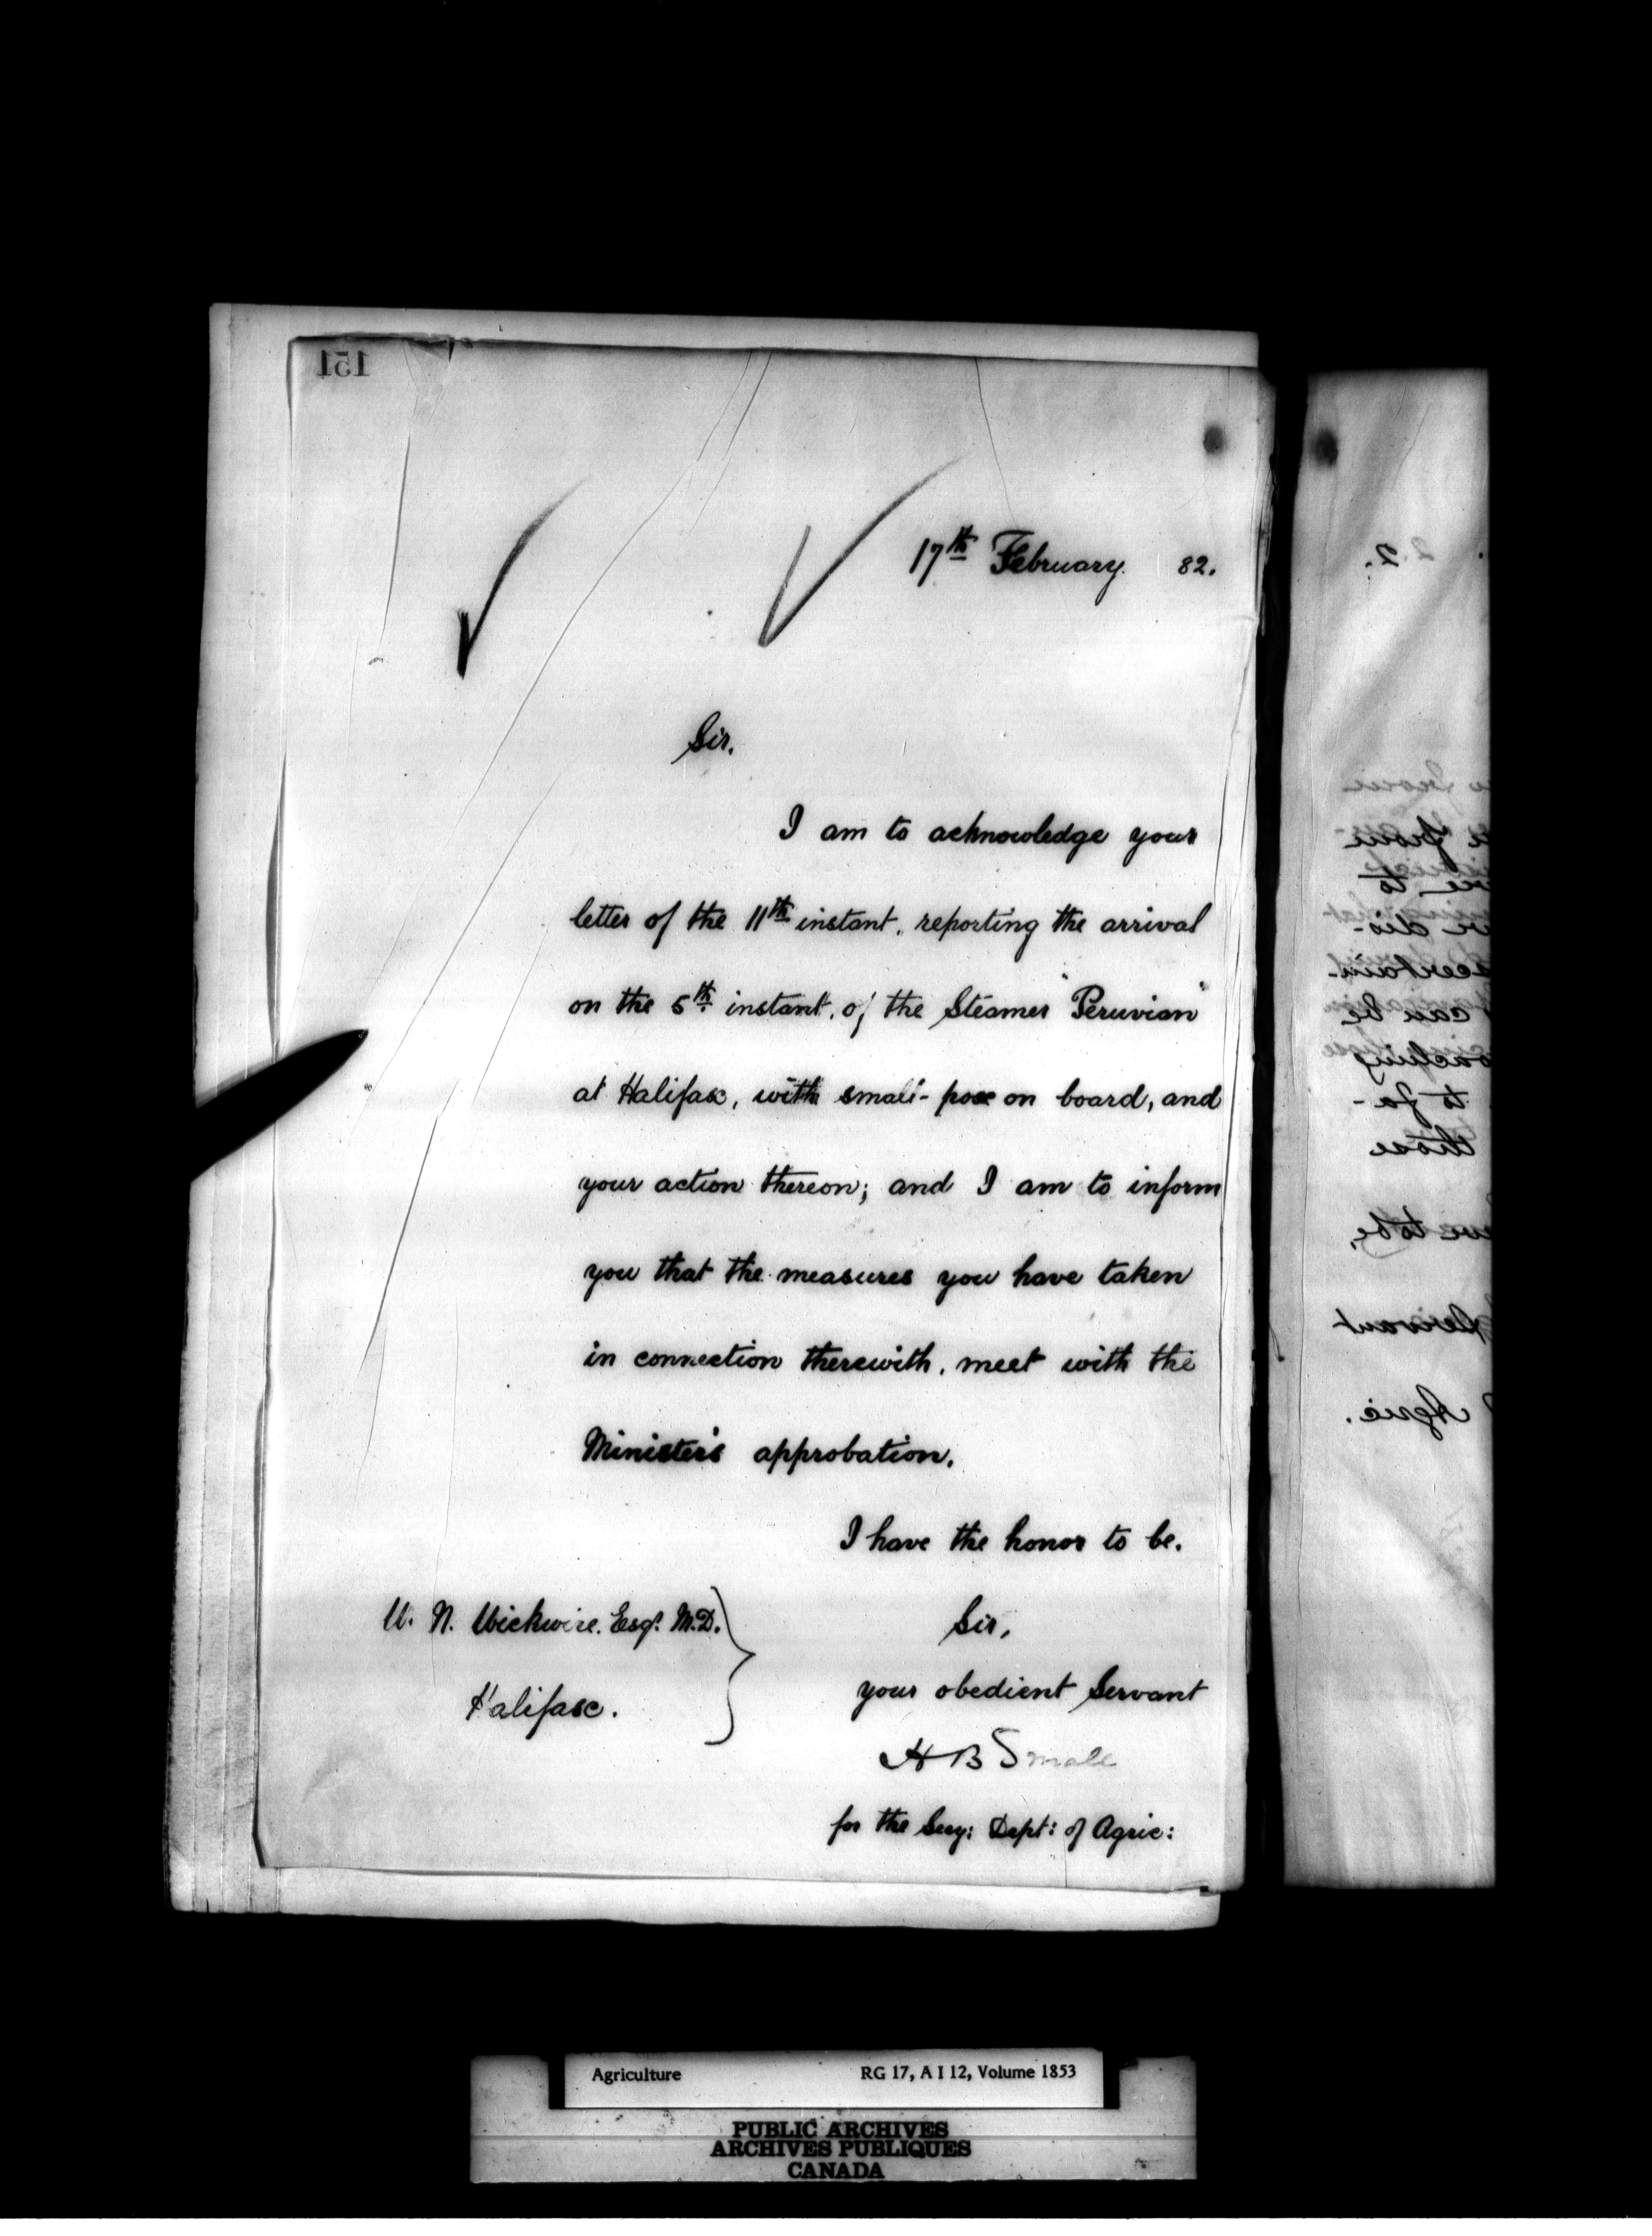 151
17th February. 82.
Sir,
I am to acknowledge your
letter of the 11th instant, reporting the arrival
on the 5th instant, of the Steamer "Peruvian"
at Halifax, with small-pox on board, and
your action thereon; and I am to inform
you that the measures you have taken
in connection therewith, meet with the
Minister's approbation.
I have the honor to be,
Sir,
your obedient Servant
H B Small
for the Secy: Dept: of Agric:
W. N. Wickwire. Esqr. M.D.
Halifax.
to
dis-
can be
to fa-
those
to be,
Servant
Agric.
Agriculture RG 17, A I 12, Volume 1853
PUBLIC ARCHIVES
ARCHIVES PUBLIQUES
CANADA